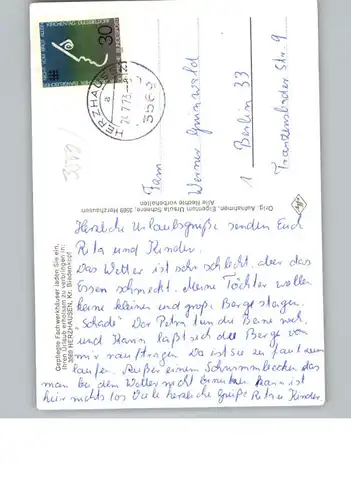 30
HERZHAUSEN
a
3569
Fam
Werner Grünwald
1 Berlin 33
Franzensbader Str. 9
Orig. Aufnahmen, Eigentum Ursula Scheere, 3569 Herzhausen
Alle Rechte vorbehalten
Gepflegte Fachwerkhäuser laden Sie ein,
Ihren Urlaub erholsam zu verbringen in:
3569 HERZHAUSEN, Kr. Biedenkopf
Herzliche Urlaubsgrüße senden Euch
Rita und Kinder.
Das Wetter ist sehr schlecht, aber das
Essen schmeckt. Meine Töchter wollen
keine kleinen und große Berge steigen.
Schade! Der Petra tun die Beine weh,
und Hanni läßt sich die Berge von
mir rauftragen. Da ist sie zu faul zum
laufen. Außer einem Schwimmbecken das
man bei dem Wetter nicht benutzen kann ist
hier nichts los Viele herzliche Grüße Rita u Kinder